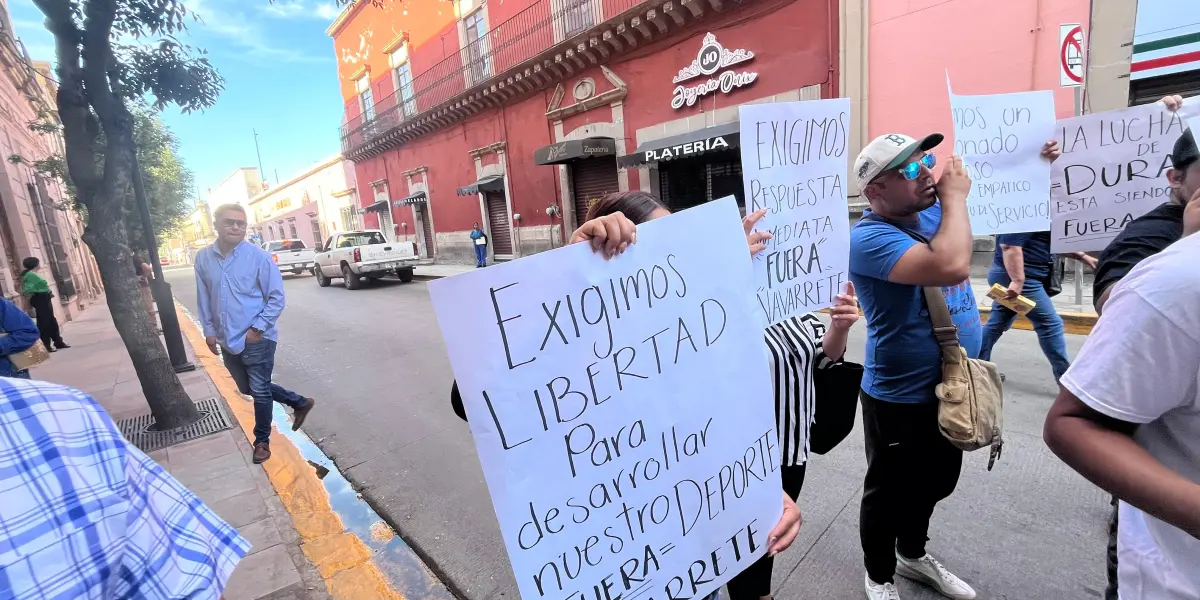 JO
Joyería Ortíz
Zapatería
PLATERÍA
EXIGIMOS
LIBERTAD
Para
desarrollar
nuestro DEPORTE
FUERA=
NAVARRETE
EXIGIMOS
RESPUESTA
INMEDIATA
"FUERA"
NAVARRETE
EMPÁTICO
DE SERVICIO!
LA LUCHA
DE
=DURA
ESTA SIENDO
FUERA